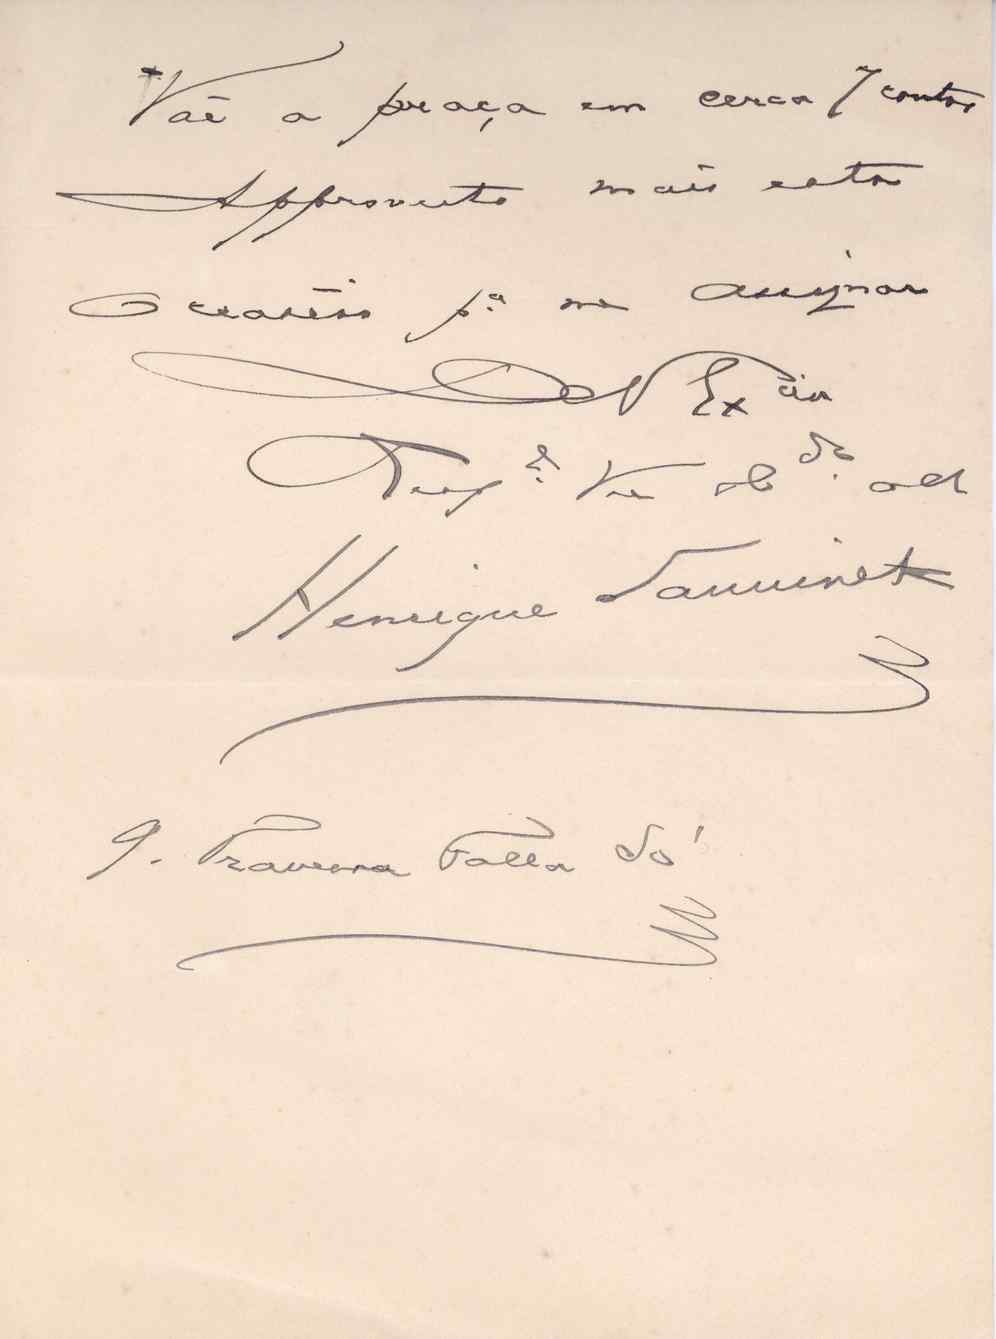 Vae a praça em cerca 7 contos
Approveito mais esta
occasião pª me assignar
De V Excia
Vor obdo
Henrique Sauvinet
9. Travessa Falla Só